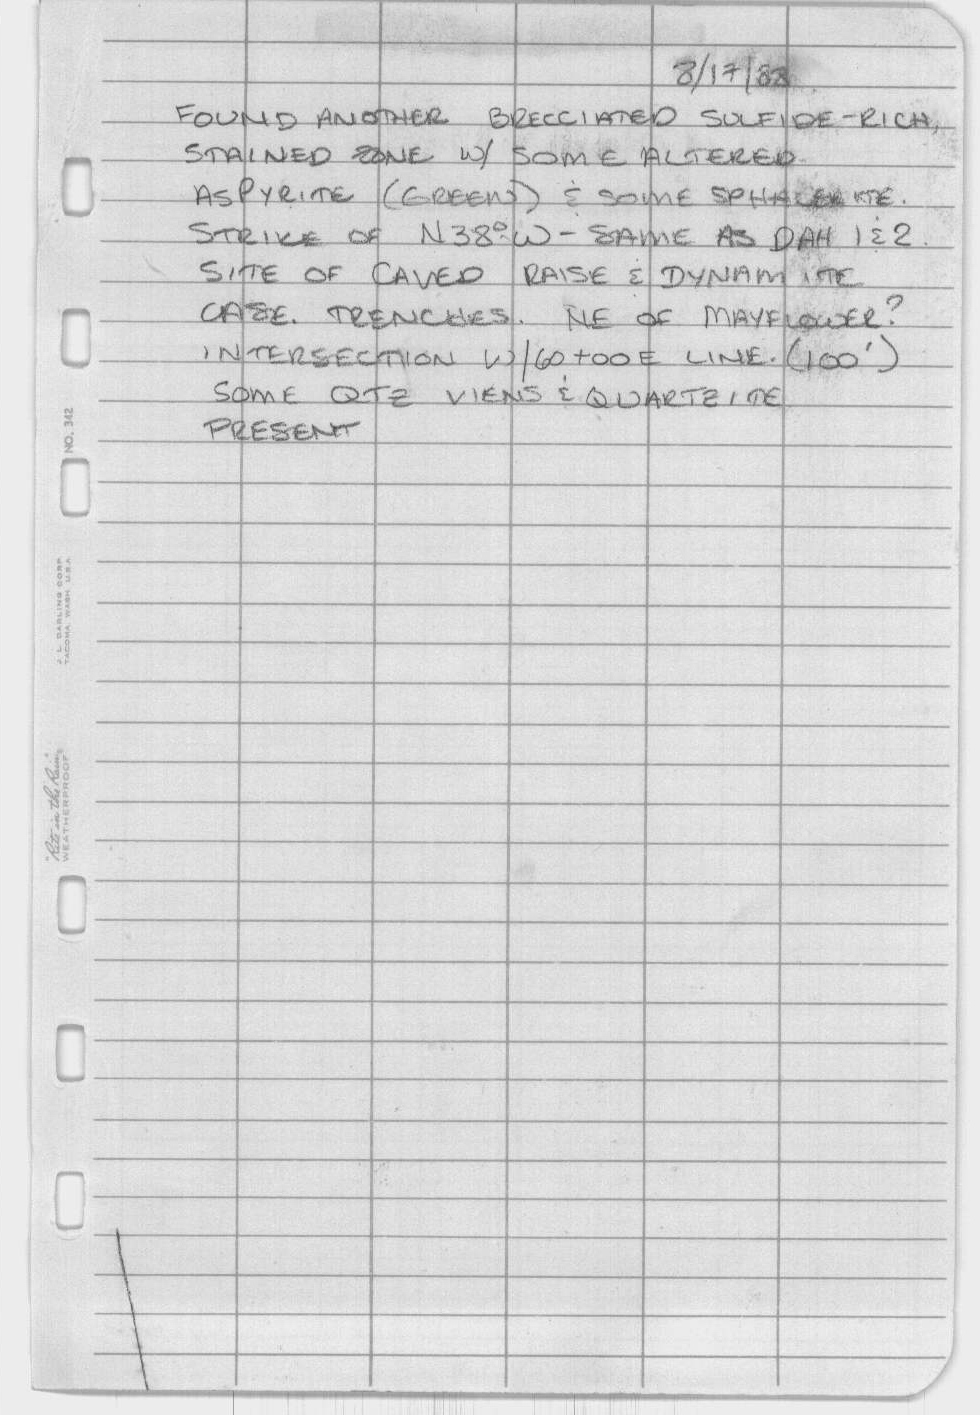 8/17/88
FOUND ANOTHER BRECCIATED SULFIDE-RICH,
STAINED ZONE W/ SOME ALTERED
ASPYRITE (GREEN) & SOME SPHALERITE.
STRIKE OF N38°W - SAME AS DAH 1&2.
SITE OF CAVED RAISE & DYNAMITE
CASE. TRENCHES. NE OF MAYFLOWER?
INTERSECTION W/60+00E LINE. (100')
SOME QTZ VIENS & QUARTZITE
PRESENT
NO. 342
J. L. DARLING CORP
TACOMA, WASH. U.S.A.
"Rite in the Rain"
WEATHERPROOF